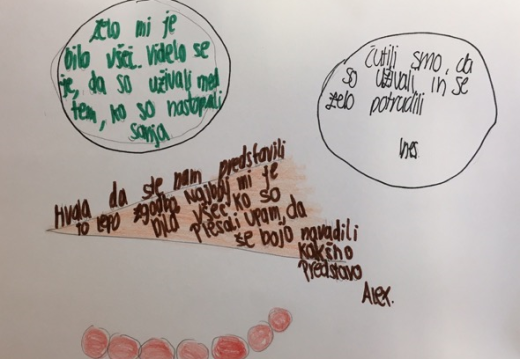 Zelo mi je
bilo všeč. Videlo se
je, da so uživali med
tem, ko so nastopali
Sanja
Čutili smo, da
so uživali in se
zelo potrudili
Ines
Hvala da ste nam predstavili
to lepo zgodbo Najbolj mi je
bilo všeč ko so
plesali upam, da
se bojo navadili
kakšno
Predstavo
Alex.